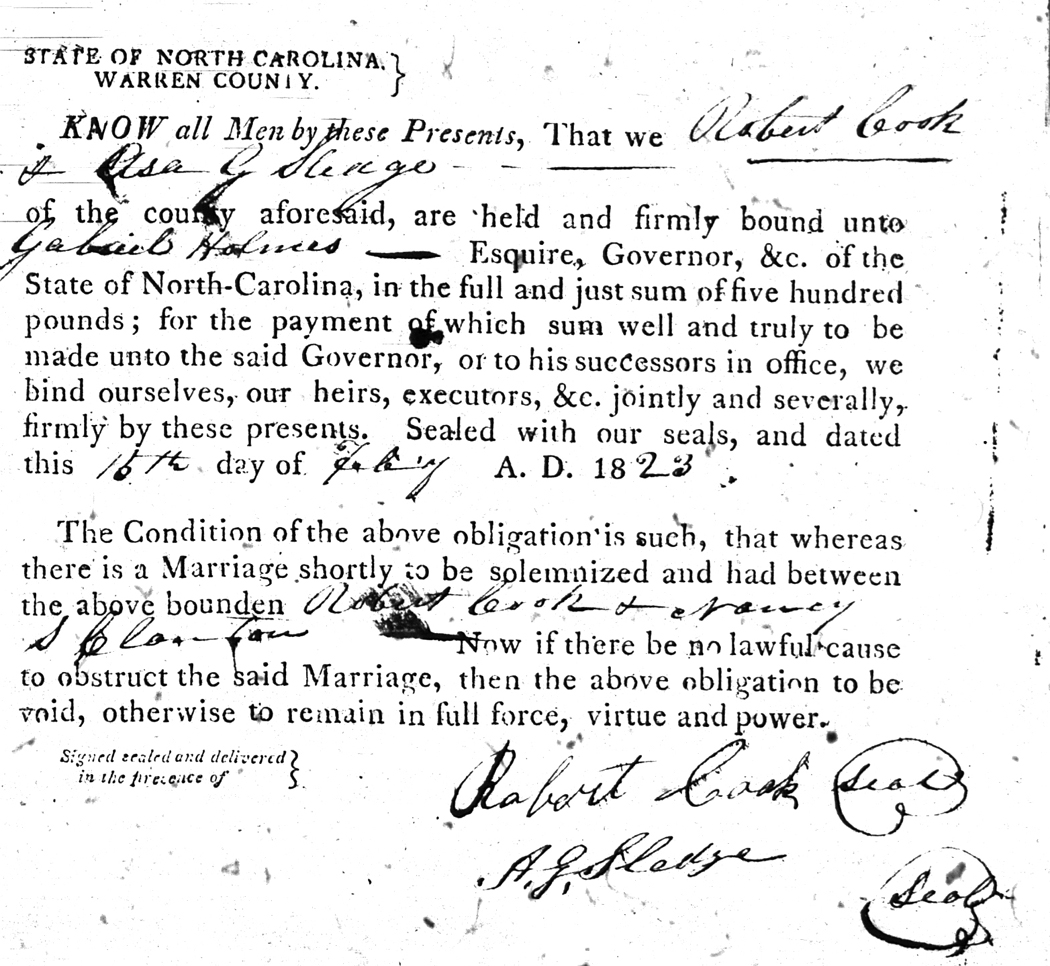 STATE OF NORTH CAROLINA.
WARREN COUNTY.
KNOW all Men by these Presents, That we Robert Cook
& Asa G Sledge
of the county aforesaid, are held and firmly bound unto
Gabriel Holmes — Esquire, Governor, &c. of the
State of North-Carolina, in the full and just sum of five hundred
pounds; for the payment of which sum well and truly to be
made unto the said Governor, or to his successors in office, we
bind ourselves, our heirs, executors, &c. jointly and severally,
firmly by these presents. Sealed with our seals, and dated
this 15th day of Feby A. D. 1823
The Condition of the above obligation is such, that whereas
there is a Marriage shortly to be solemnized and had between
the above bounden Robert Cook & Nancy
S Clanton Now if there be no lawful cause
to obstruct the said Marriage, then the above obligation to be
void, otherwise to remain in full force, virtue and power.
Signed sealed and delivered
in the presence of
Robert Cook Seal
A. G. Sledge
Seal